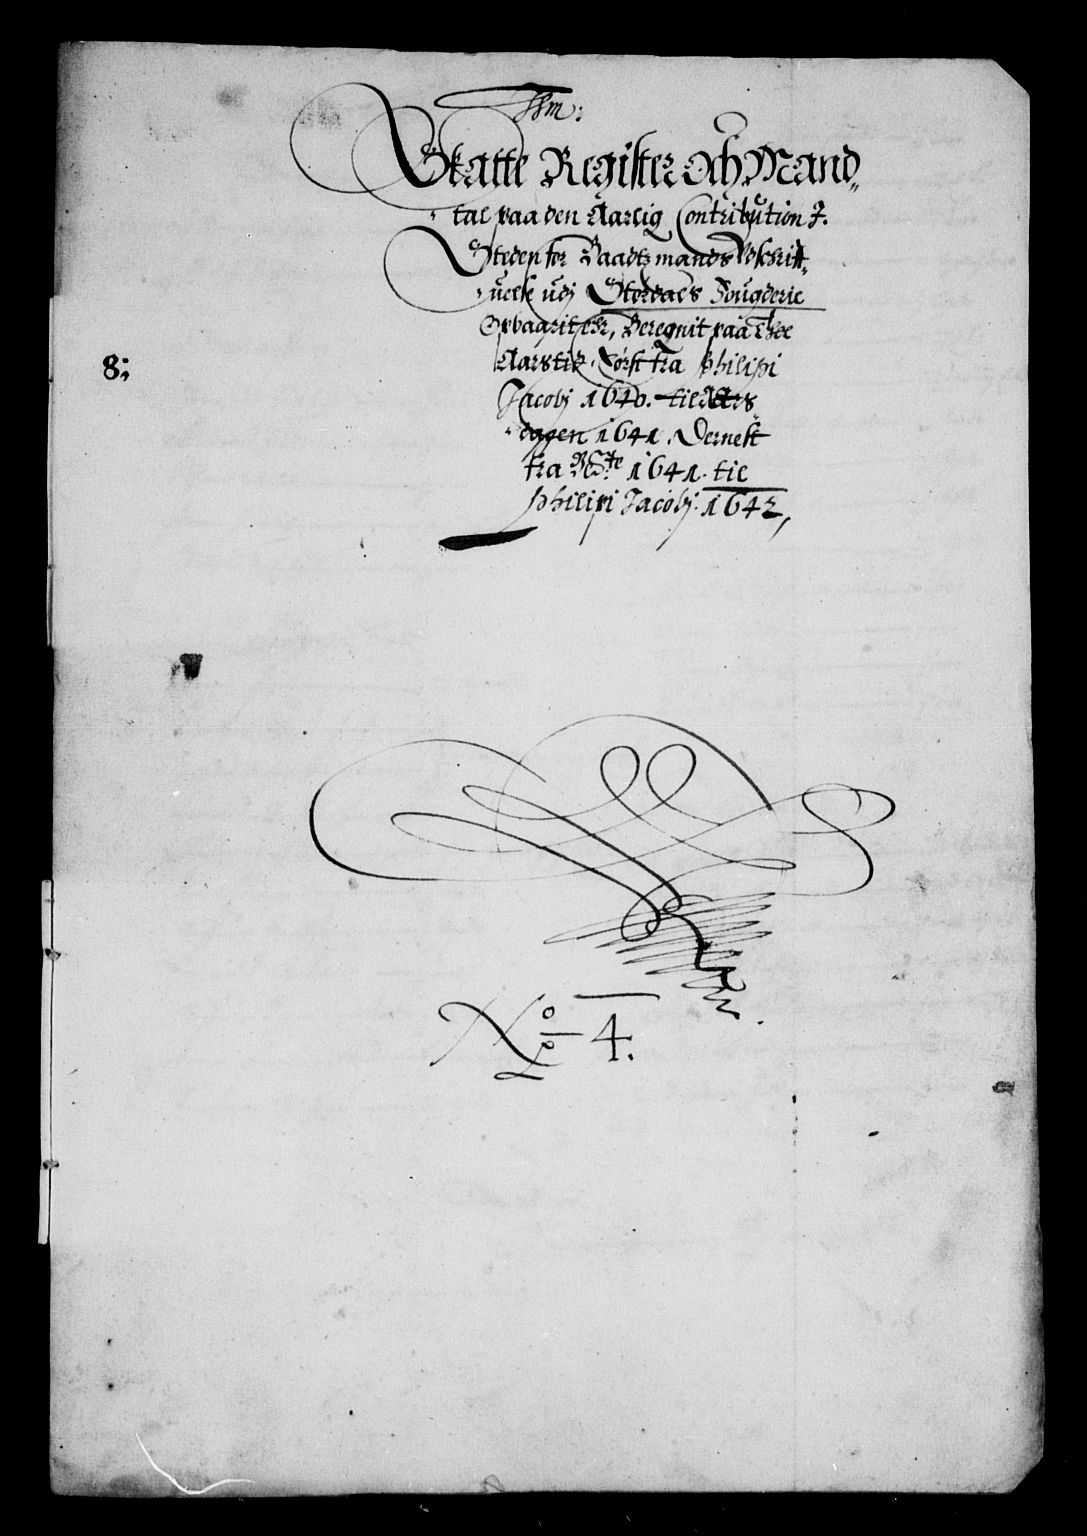 Skatte Register Och Mand„
tal paa den Aarlig Contribution J.
Steden for Baadtzmands Vdschriff„
uelse udj Størdals Fougderie
Opbaarit ehr, Beregnit paa Thee
Aarstid. Først fra Philipi
Jacobj 1640. til Aars
dagen 1641, Dernest
fra 1641. til
Philipi Jacobj. 1642,
8;
No 4.